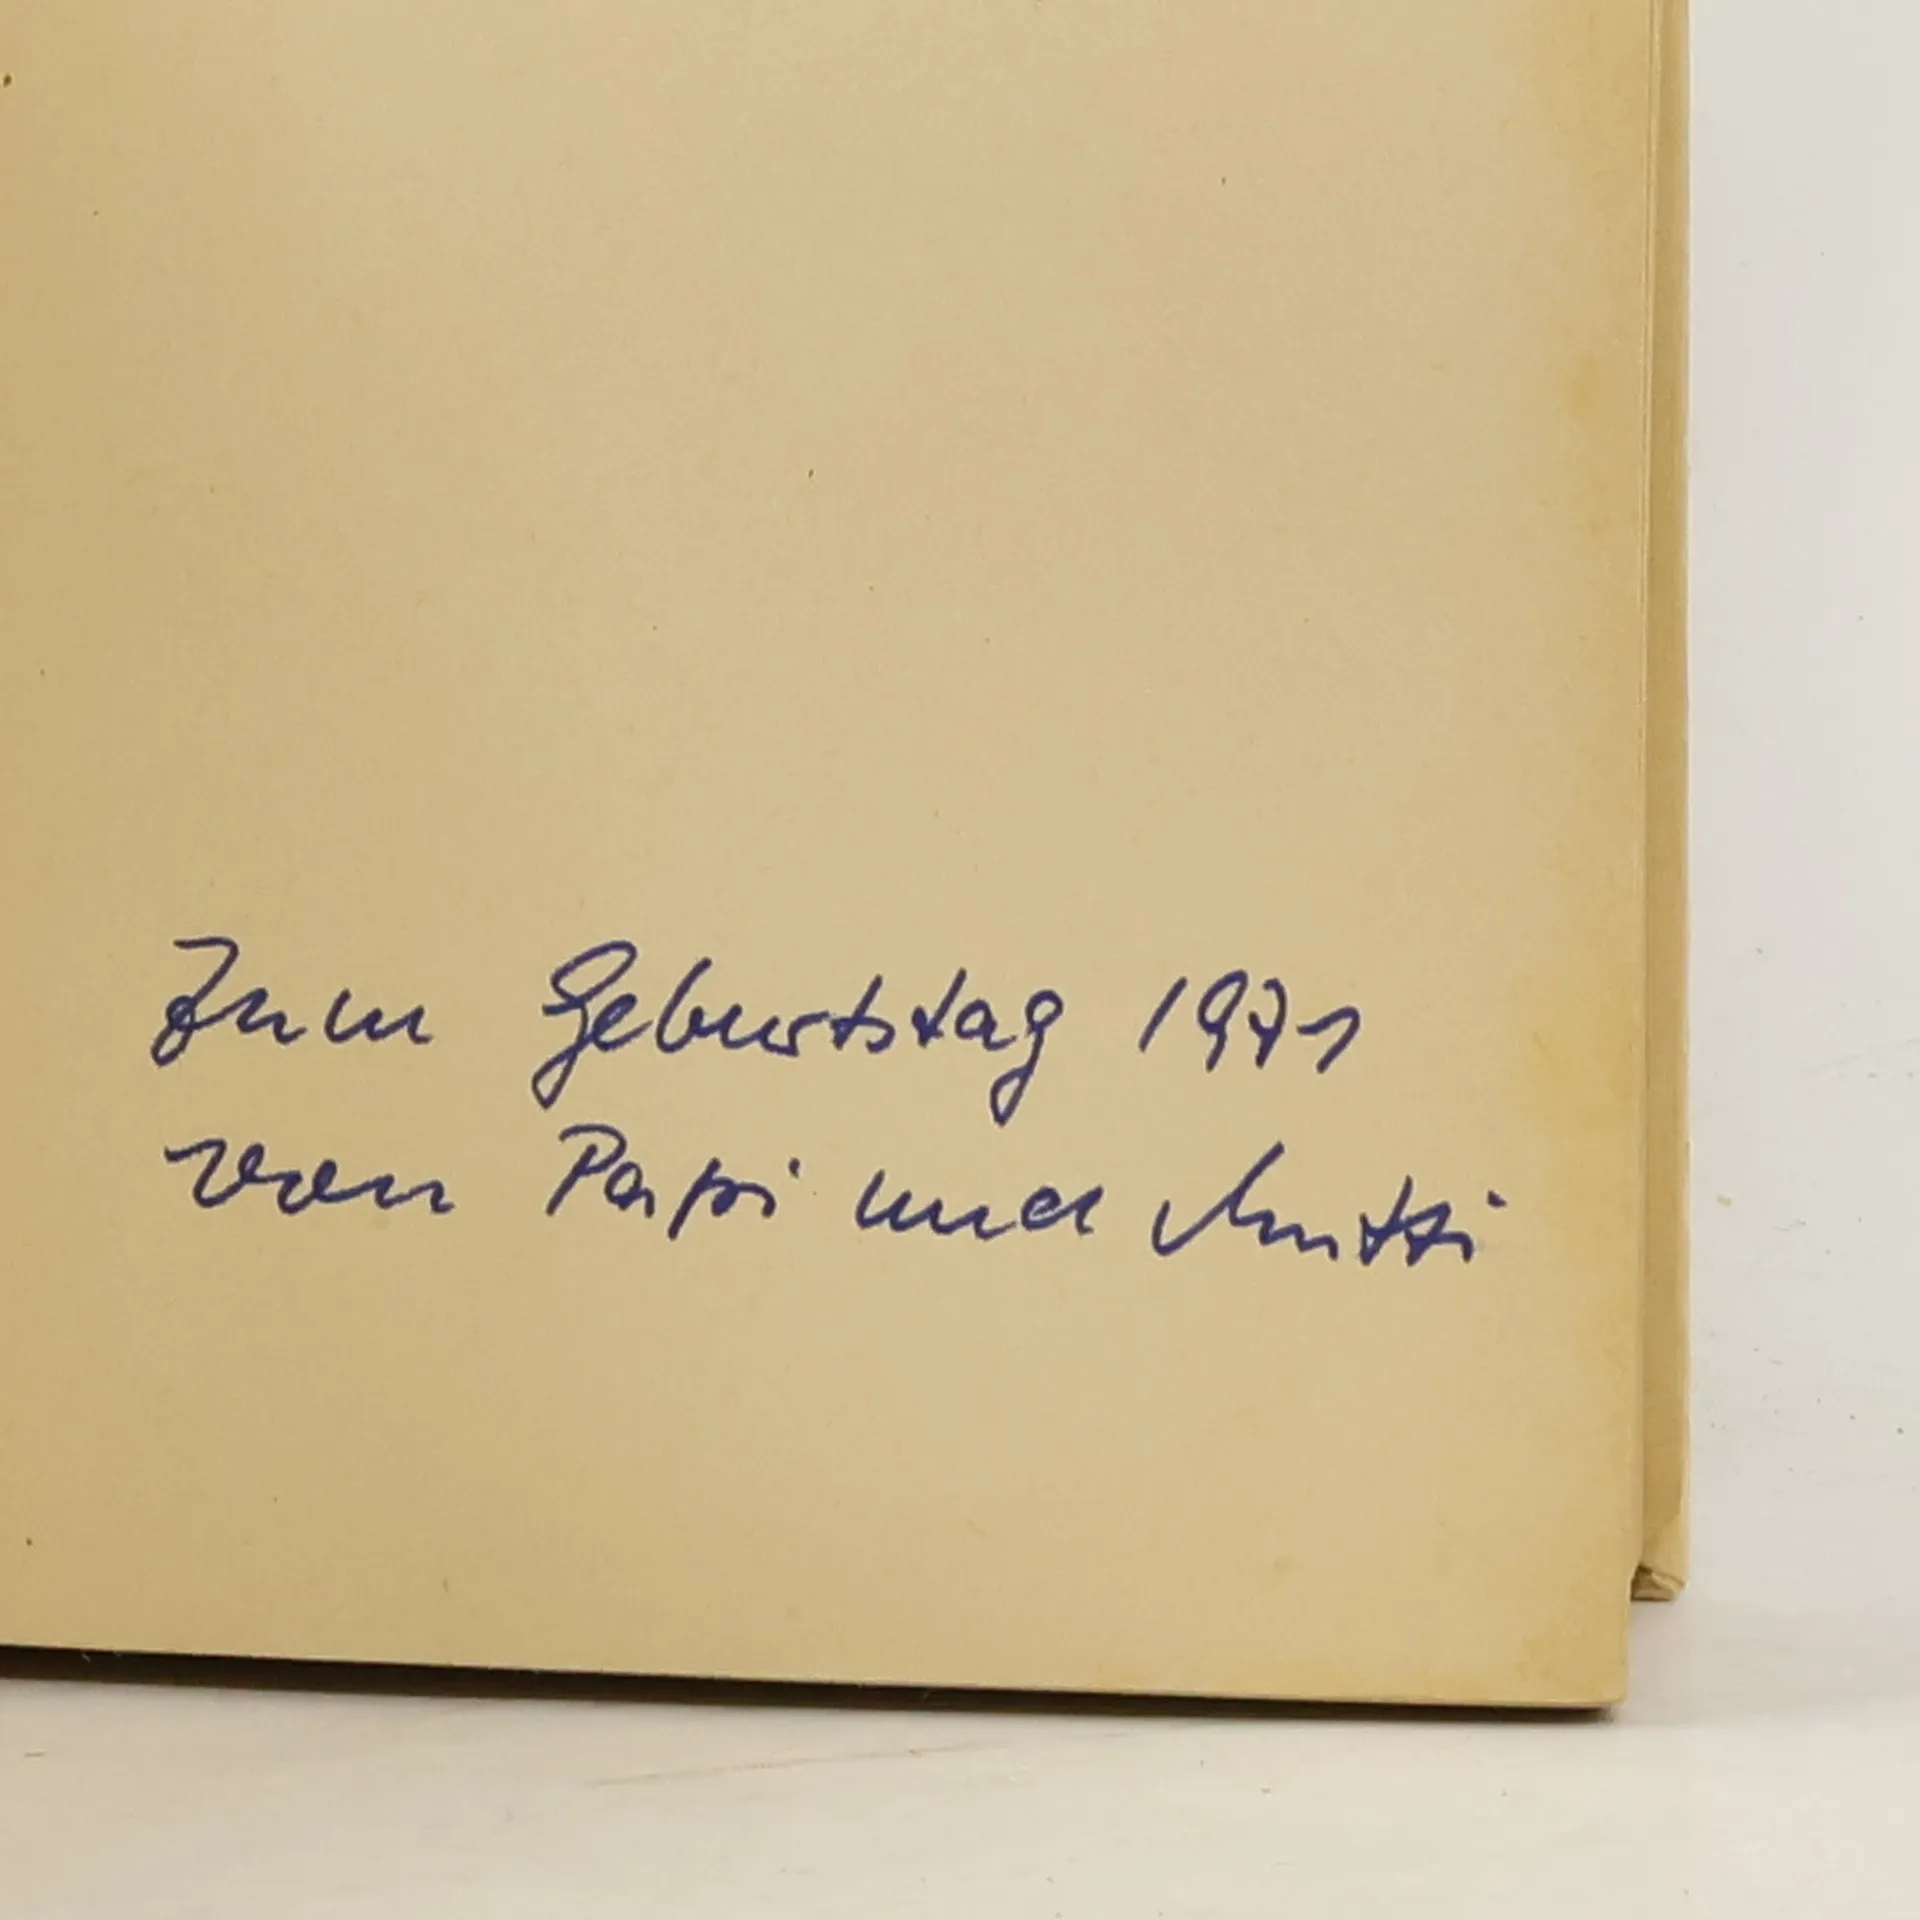 Zum Geburtstag 1971
von Papi und Mutti